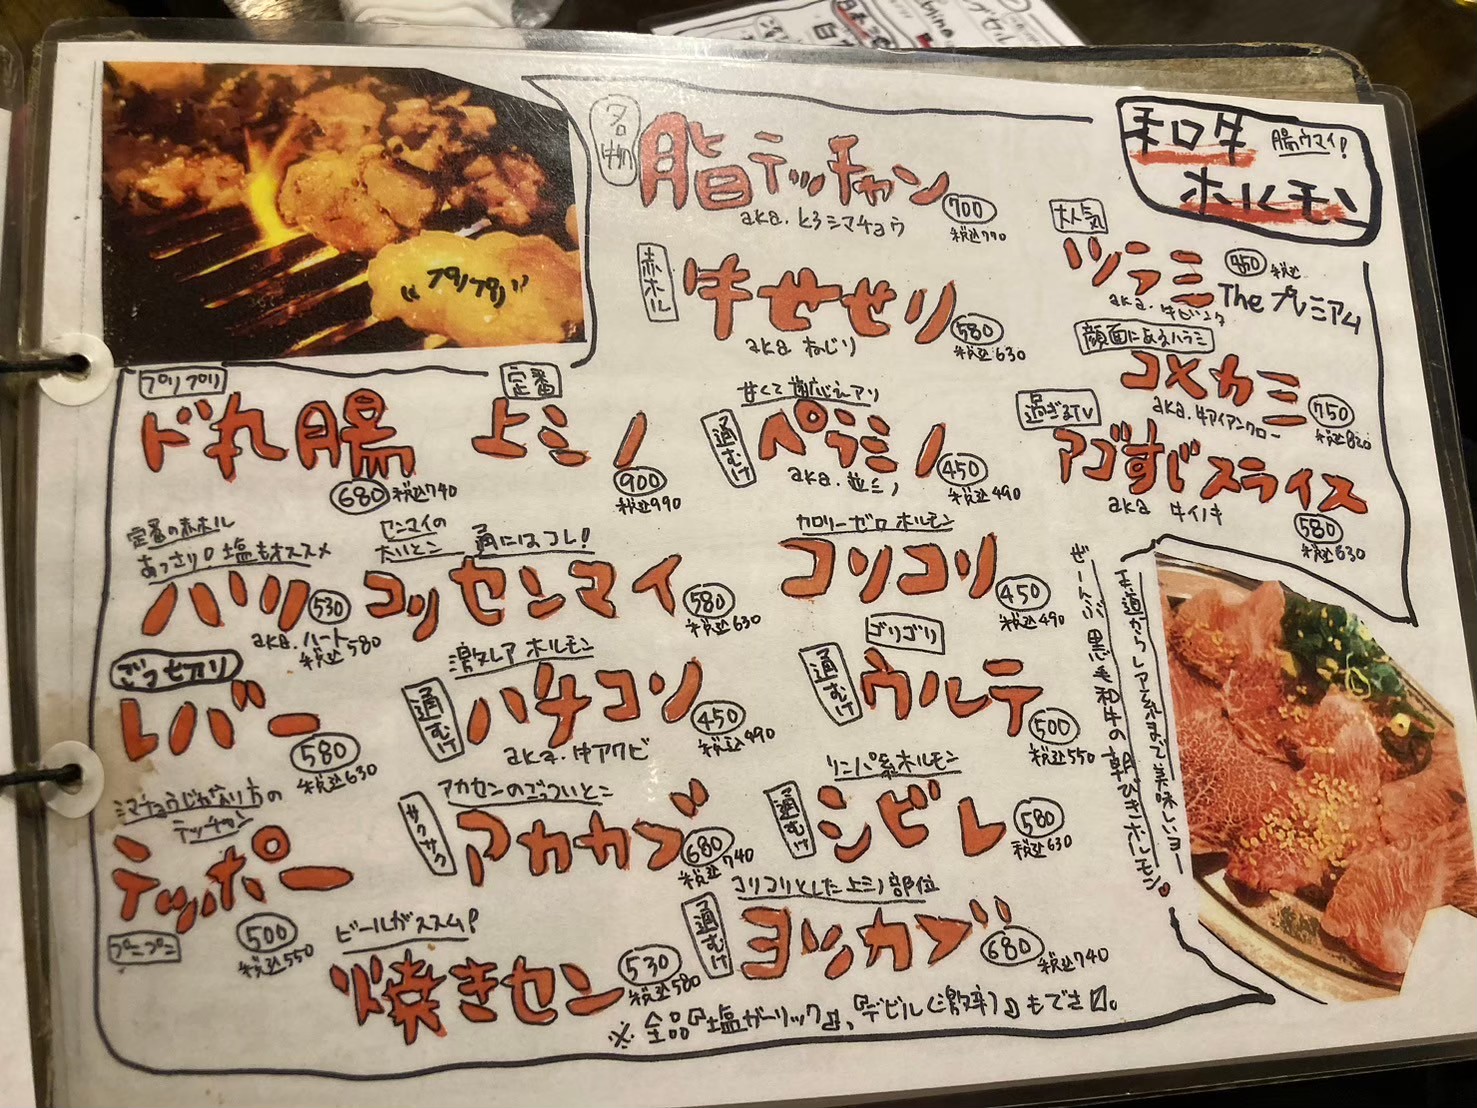 和牛
ホルモン
腸ウマイ!
名物
脂テッチャン
700
税込770
aka. とろシマチョウ
赤ホル
牛せせり
580
税込630
aka ねじり
大人気
ツラミ
税込
The プレミアム
顔面にあるハラミ
コメカミ
750
税込820
aka. 牛アイアンクロー
過ぎるTV
アゴすじスライス
aka 牛イノキ
580
税込630
"プリプリ"
プリプリ
ド丸腸
680
税込740
定番
上ミノ
900
税込990
甘くて歯応えアリ
通むけ
ペラミノ
450
税込490
aka. 並ミノ
定番の赤ホル
あっさり○塩もオススメ
ハツ
530
税込580
aka. ハート
センマイの
太いとこ
通にはコレ!
コリセンマイ
580
税込630
カロリーゼロ ホルモン
コリコリ
450
税込490
レバー
580
税込630
激レア ホルモン
通むけ
ハチコソ
450
税込490
aka. 牛アワビ
ゴリゴリ
通むけ
ウルテ
500
税込550
シマチョウじゃない方の
テッチャン
テッポー
プニプニ
500
税込550
アカセンのごっついとこ
サクサク
アカカブ
680
税込740
リンパ系ホルモン
通むけ
シビレ
580
税込630
ビールがススム!
焼きセン
530
税込580
コリコリとした上ミノ部位
通むけ
ヨツカブ
680
税込740
王道からレア系まで美味しいヨー
ぜーんぶ 黒毛和牛の朝びきホルモン
※ 全品『塩ガーリック』、『デビル(激辛)』もできマス。